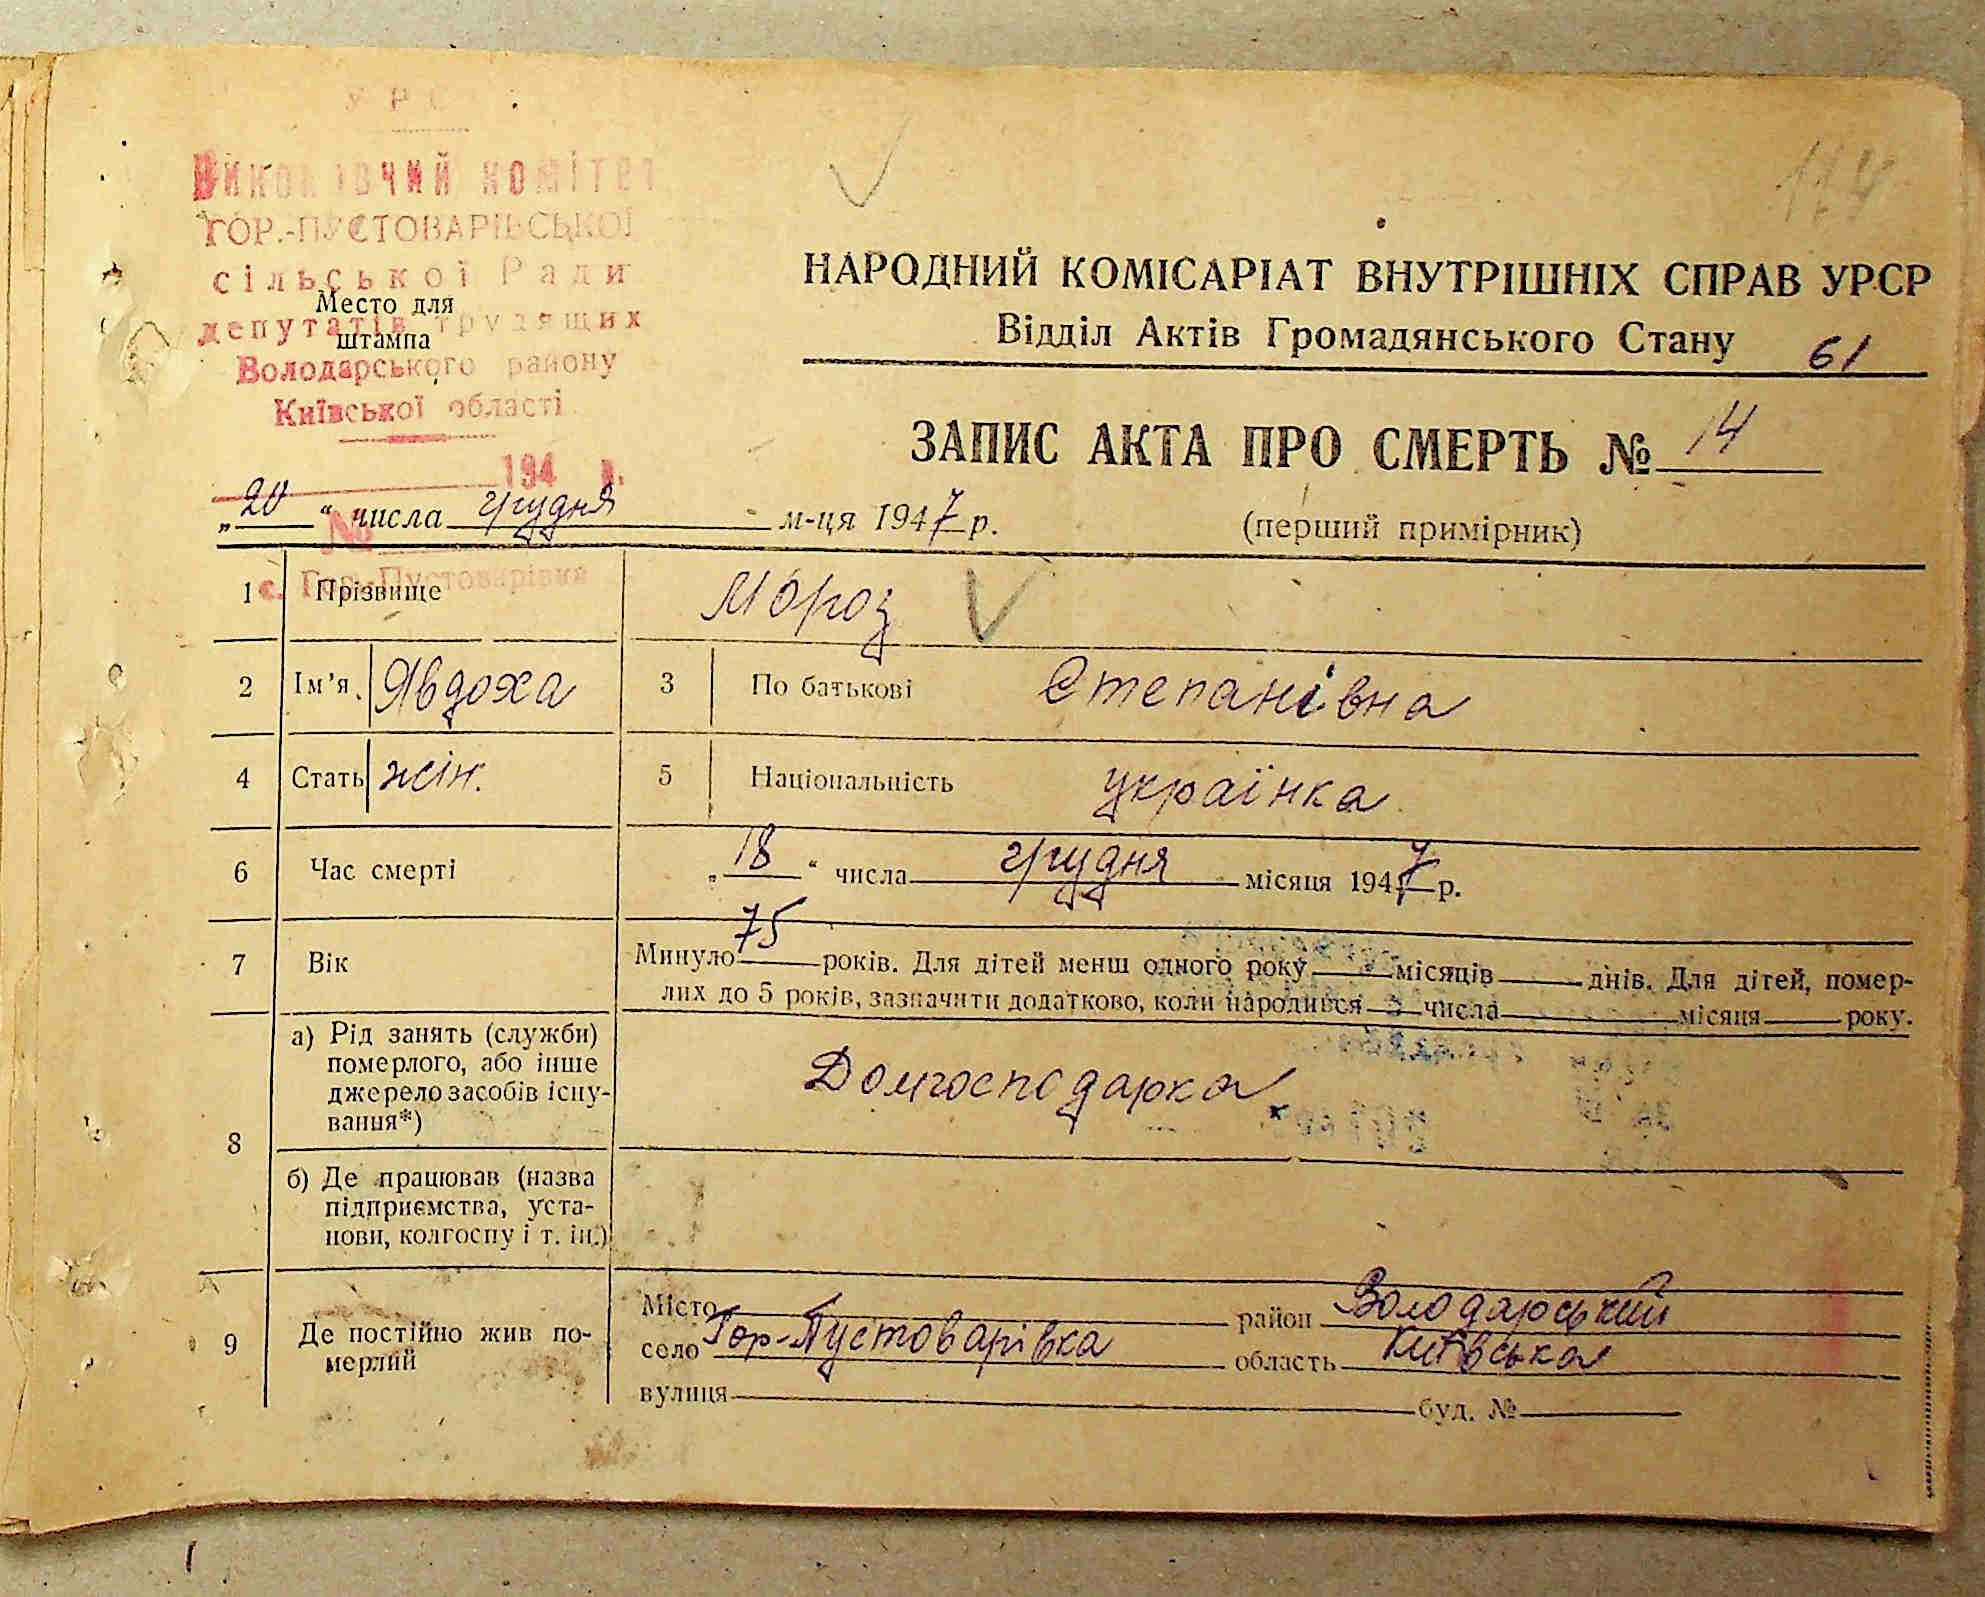 УРС
Виконавчий комітет
ГОР.-ПУСТОВАРІВСЬКОЇ
сільської Ради
депутатів трудящих
Володарського району
Київської області
194 р.
№
с. Гор.-Пустоварівка
Место для
штампа
114
НАРОДНИЙ КОМІСАРІАТ ВНУТРІШНІХ СПРАВ УРСР
Відділ Актів Громадянського Стану 61
ЗАПИС АКТА ПРО СМЕРТЬ № 14
„20“ числа грудня м-ця 1947 р. (перший примірник)
1 Прізвище Мороз
2 Ім'я Явдоха 3 По батькові Степанівна
4 Стать жін. 5 Національність українка
6 Час смерті „18“ числа грудня місяця 1947 р.
7 Вік Минуло 75 років. Для дітей менш одного року місяців днів. Для дітей, помер-
лих до 5 років, зазначити додатково, коли народився числа місяця року.
8 а) Рід занять (служби)
померлого, або інше
джерело засобів існу-
вання*) Домгосподарка
б) Де працював (назва
підприємства, уста-
нови, колгоспу і т. ін.)
9 Де постійно жив по-
мерлий
Місто район Володарський
село Гор-Пустоварівка область Київська
вулиця буд. №